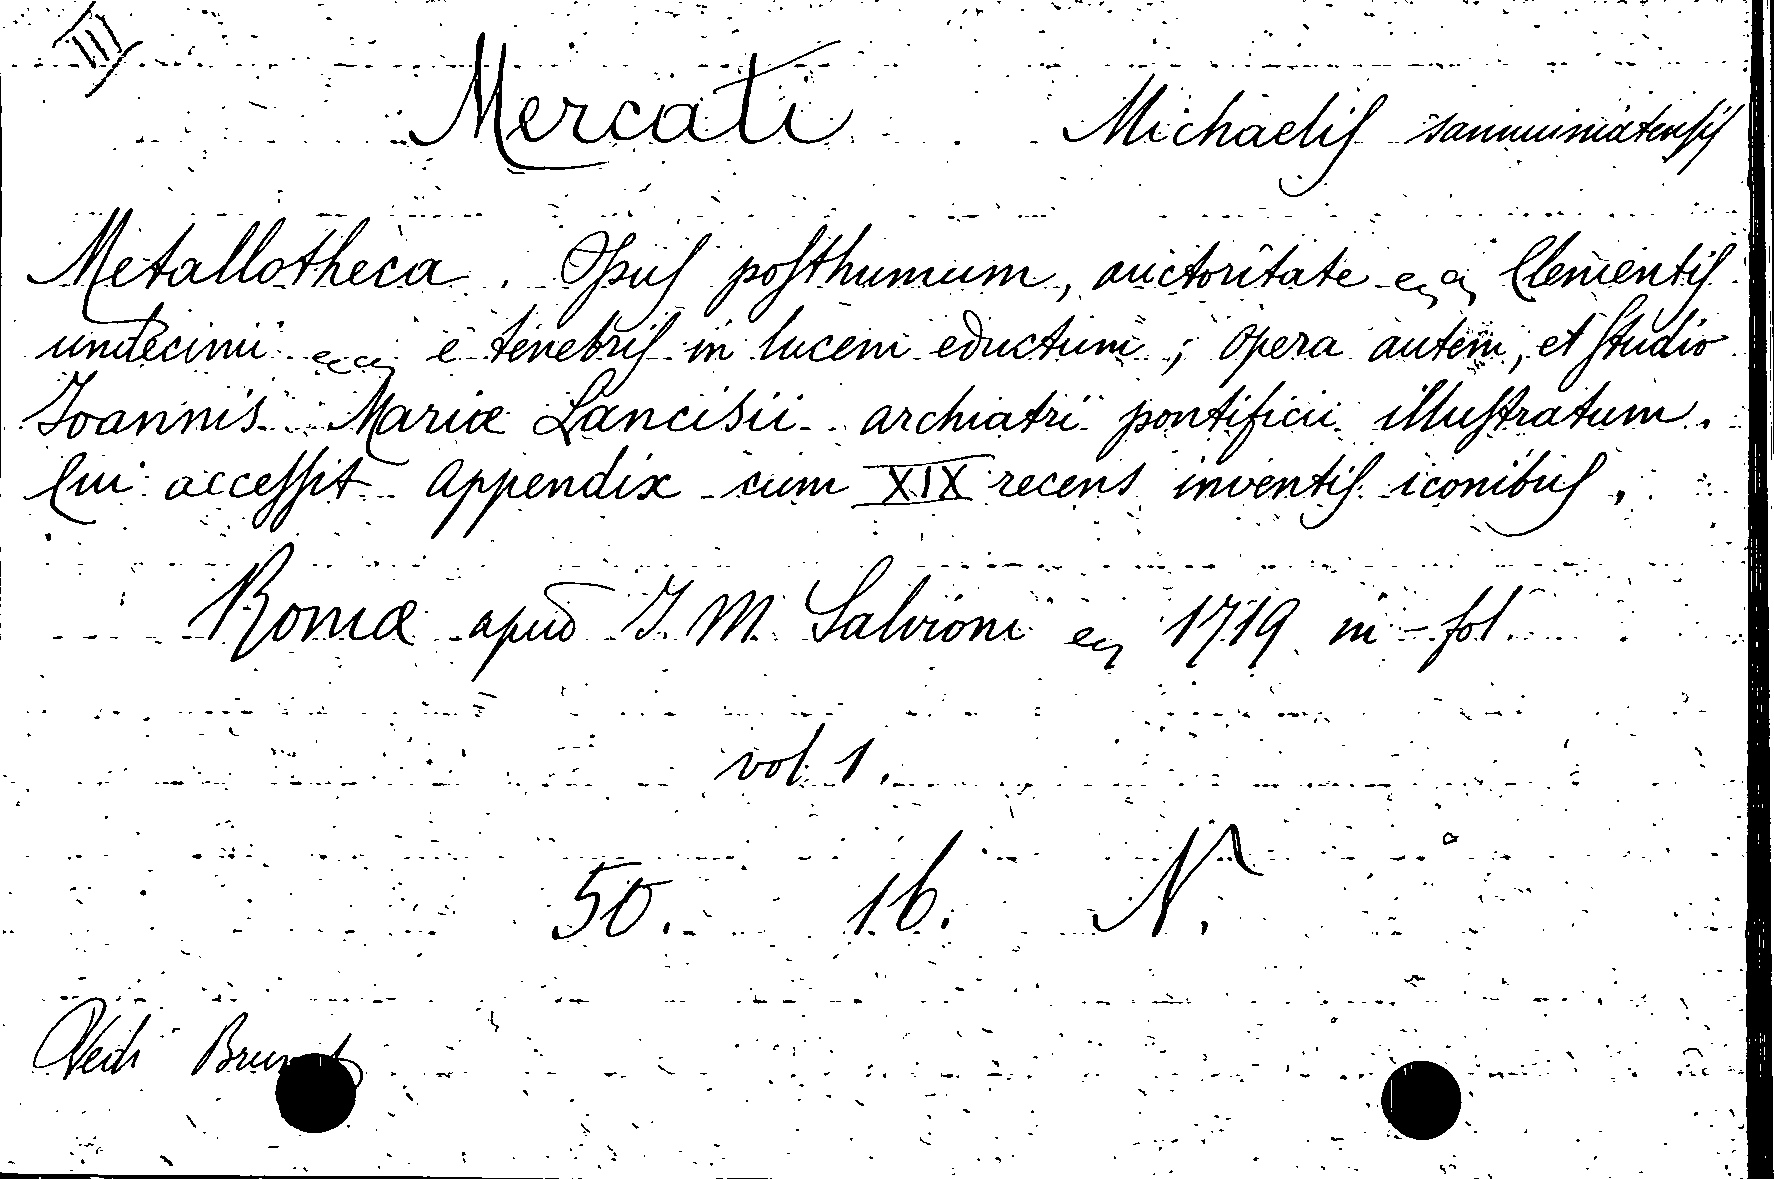 III
Mercati Michaelis sanminiatensis
Metallotheca. Opus posthumum, auctoritate Clementis
undecimi e tenebris in lucem eductum; opera autem, et studio
Joannis Mariæ Lancisii archiatri pontificii illustratum.
Cui accessit appendix cum XIX recens inventis iconibus.
Romæ apud J. M. Salvioni 1719 in-fol.
vol. 1.
50. 16. N.
Vedi